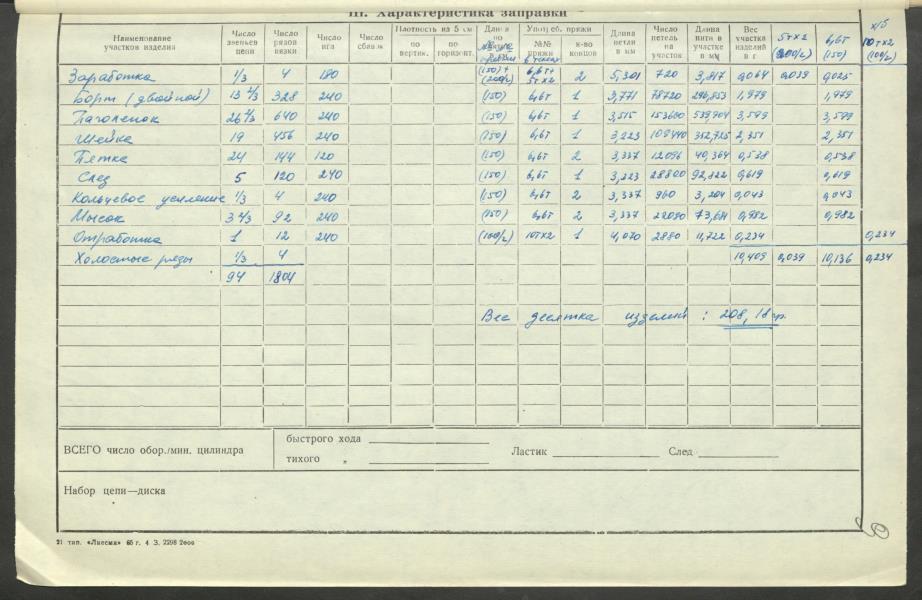 III. Характеристика заправки
Наименование участков изделия | Число звеньев цепи | Число рядов вязки | Число игл | Число сбавл. | Плотность из 5 см по вертик. | по горизонт. | Длина по | Употреб. пряжи №№ пряжи в тексах | к-во концов | Длина петли в мм | Число петель на участок | Длина нити в участке в м | Вес участка изделий в г | 5тх2 (200/2) | 6,6т (150) | х/б 10тх2 (100/2)
Заработка 1/3 4 180 (150)+(200/2) 6,6т+5тх2 2 5,301 720 3,817 0,064 0,039 0,025
Борт (двойной) 13 2/3 328 240 (150) 6,6т 1 3,771 78720 296,853 1,979 1,979
Паголенок 26 2/3 640 240 (150) 6,6т 1 3,515 153600 539,904 3,599 3,599
Шейка 19 456 240 (150) 6,6т 1 3,223 109440 352,725 2,351 2,351
Пятка 24 144 120 (150) 6,6т 2 3,337 12096 40,364 0,538 0,538
След 5 120 240 (150) 6,6т 1 3,223 28800 92,822 0,619 0,619
Кольцевое усиление 1/3 4 240 (150) 6,6т 2 3,337 960 3,204 0,043 0,043
Мысок 3 2/3 92 240 (150) 6,6т 2 3,337 22080 0,982 0,982
Отработка 1 12 240 (100/2) 10тх2 1 4,070 2880 11,722 0,234 0,234
Холостые ряды 1/3 4 10,409 0,039 10,136 0,234
94 1804
Вес десятка изделий : 208,18 гр.
ВСЕГО число обор./мин. цилиндра
быстрого хода
тихого „
Ластик
След
Набор цепи—диска
21 тип. «Лиесма» 65 г. 4 З. 2298 2000